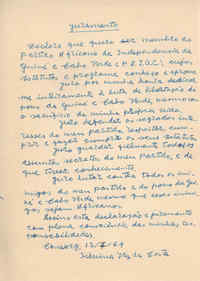 Juramento
Declaro que quero ser membro do
Partido Africano da Independência da
Guiné e Cabo Verde (P.A.I.G.C.), cujos
estatutos e programa conheço e aprovo
Juro por minha honra dedicar
me inteiramente à luta de libertação do
povo da Guiné e Cabo Verde, mesmo com
o sacrifício da minha própria vida.
Juro defender os sagrados inte
resses do meu partido, respeitar, cum-
prir e fazer cumprir os seus estatutos
Juro guardar fielmente todos os
assuntos secretos do meu Partido, e de
que tiver conhecimento
Juro lutar contra todos os ini
migos do meu partido e do povo da Gui
né e Cabo Verde mesmo que esses inimi
gos sejam africanos.
Assino esta declaração e juramento
com plena consciência das minhas res
ponsabilidades.
Conakry, 12/7/61
da Costa